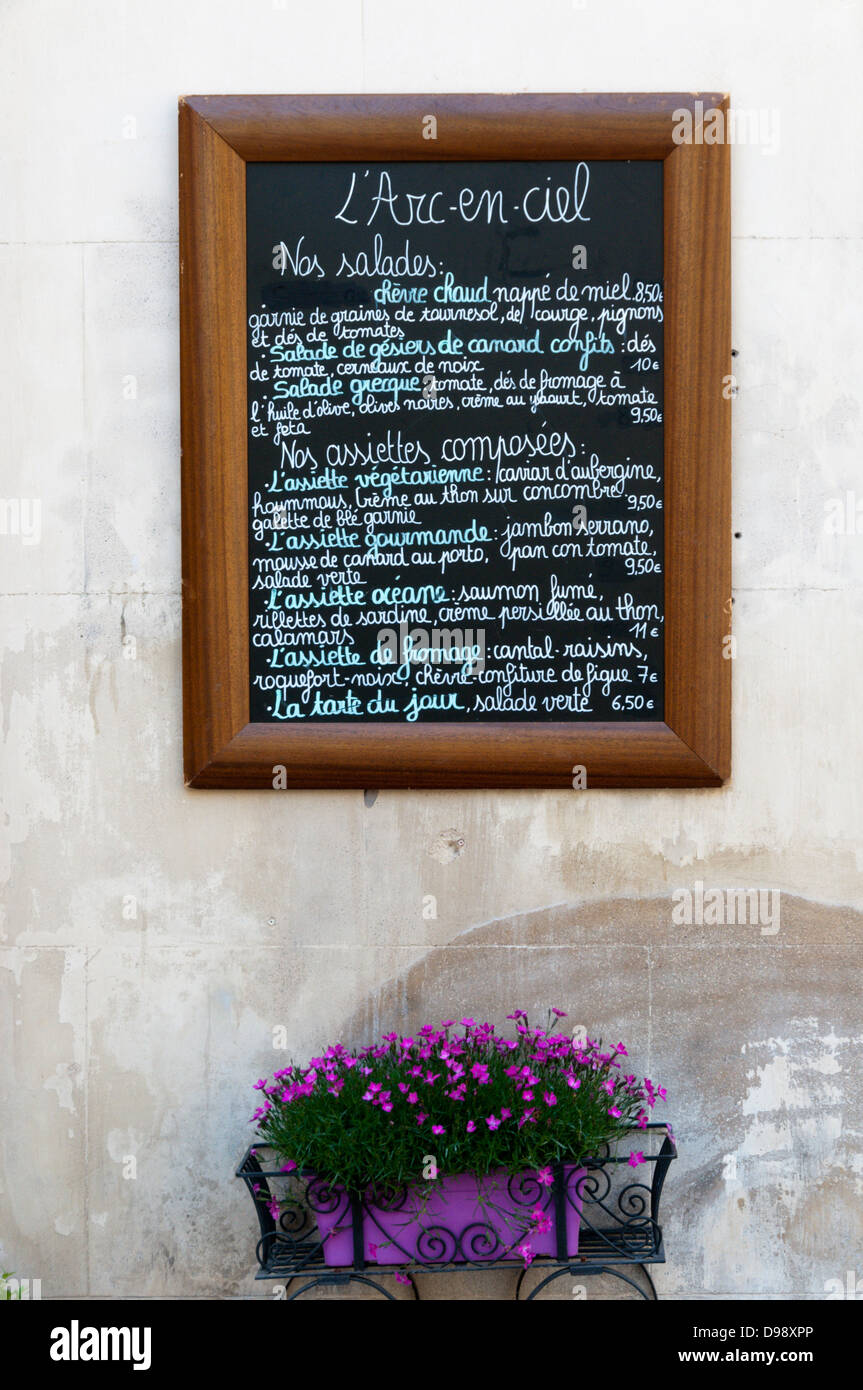 L'Arc-en-ciel
Nos salades:
chèvre chaud nappé de miel 8,50€
garnie de graines de tournesol, de courge, pignons
et dés de tomates
• Salade de gésiers de canard confits : dés
de tomate, cerneaux de noix 10€
• Salade grecque : tomate, dés de fromage à
l'huile d'olive, olives noires, crème au yaourt, tomate
et feta 9,50€
Nos assiettes composées :
• L'assiette végétarienne : caviar d'aubergine,
hoummous, crème au thon sur concombre
galette de blé garnie 9,50€
• L'assiette gourmande : jambon serrano,
mousse de canard au porto, pan con tomate,
salade verte 9,50€
• L'assiette océane : saumon fumé,
rillettes de sardine, crème persillée au thon,
calamars 11€
• L'assiette de fromage : cantal-raisins,
roquefort-noix, chèvre-confiture de figue 7€
• La tarte du jour, salade verte 6,50€
alamy
a
alamy stock photo
D98XPP
www.alamy.com